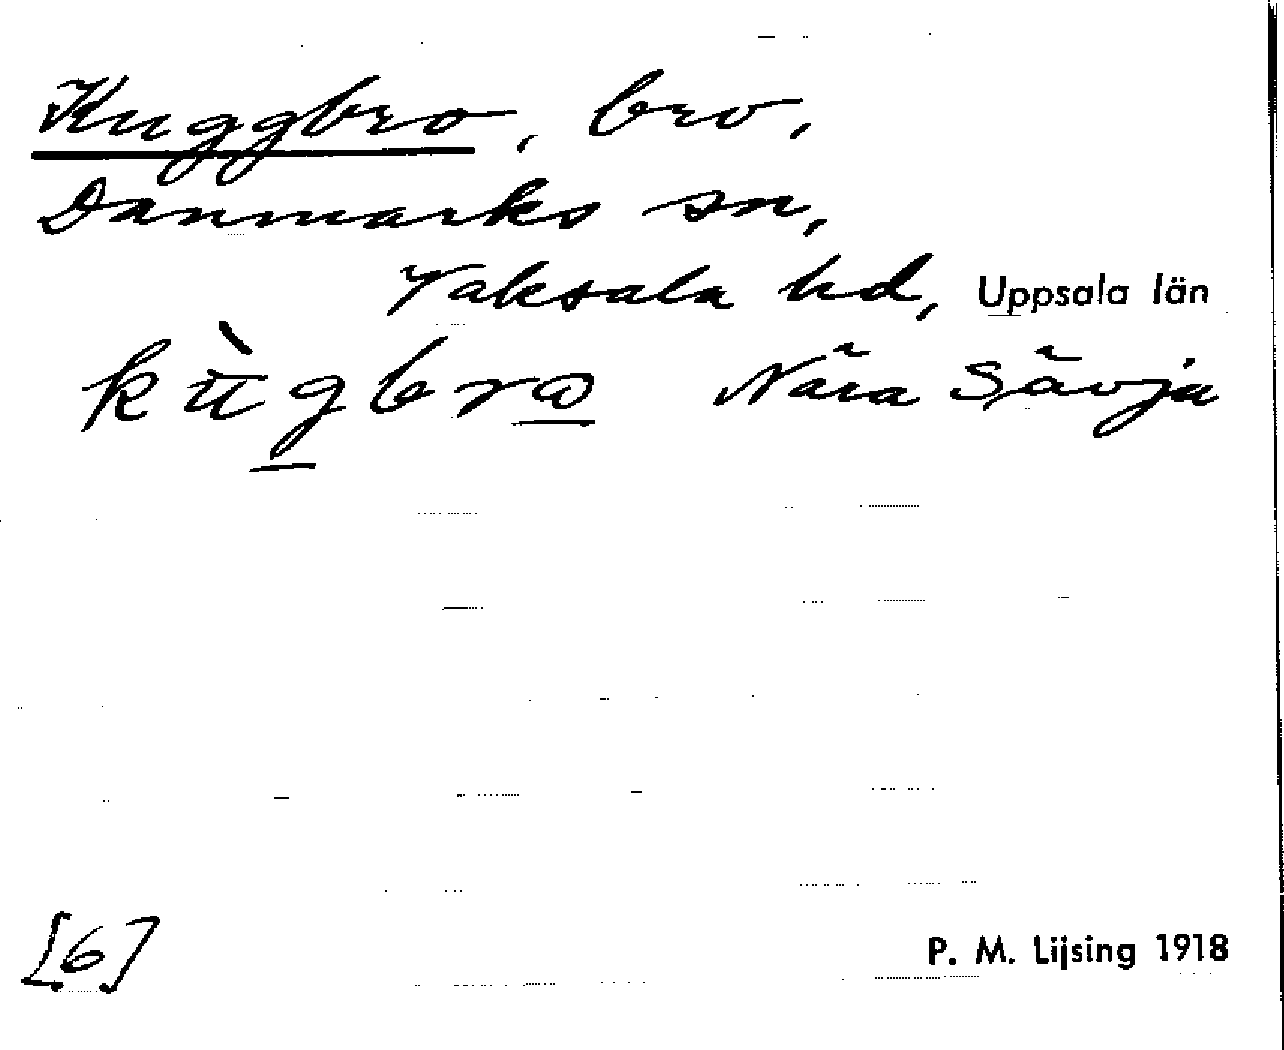 Kuggbro, bro,
Danmarks sn,
Vaksala hd, Uppsala län
kùgbro Nära Sävja
[6]
P. M. Lijsing 1918